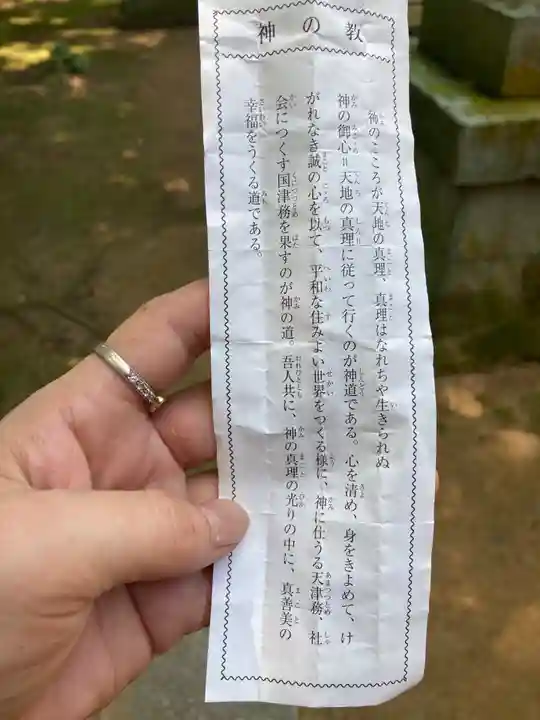 神の教
神のこころが天地の真理、真理はなれちゃ生きられぬ
神の御心＝天地の真理に従って行くのが神道である。心を清め、身をきよめて、け
がれなき誠の心を以て、平和な住みよい世界をつくる様に、神に仕うる天津務、社
会につくす国津務を果すのが神の道。吾人共に、神の真理の光りの中に、真善美の
幸福をうくる道である。